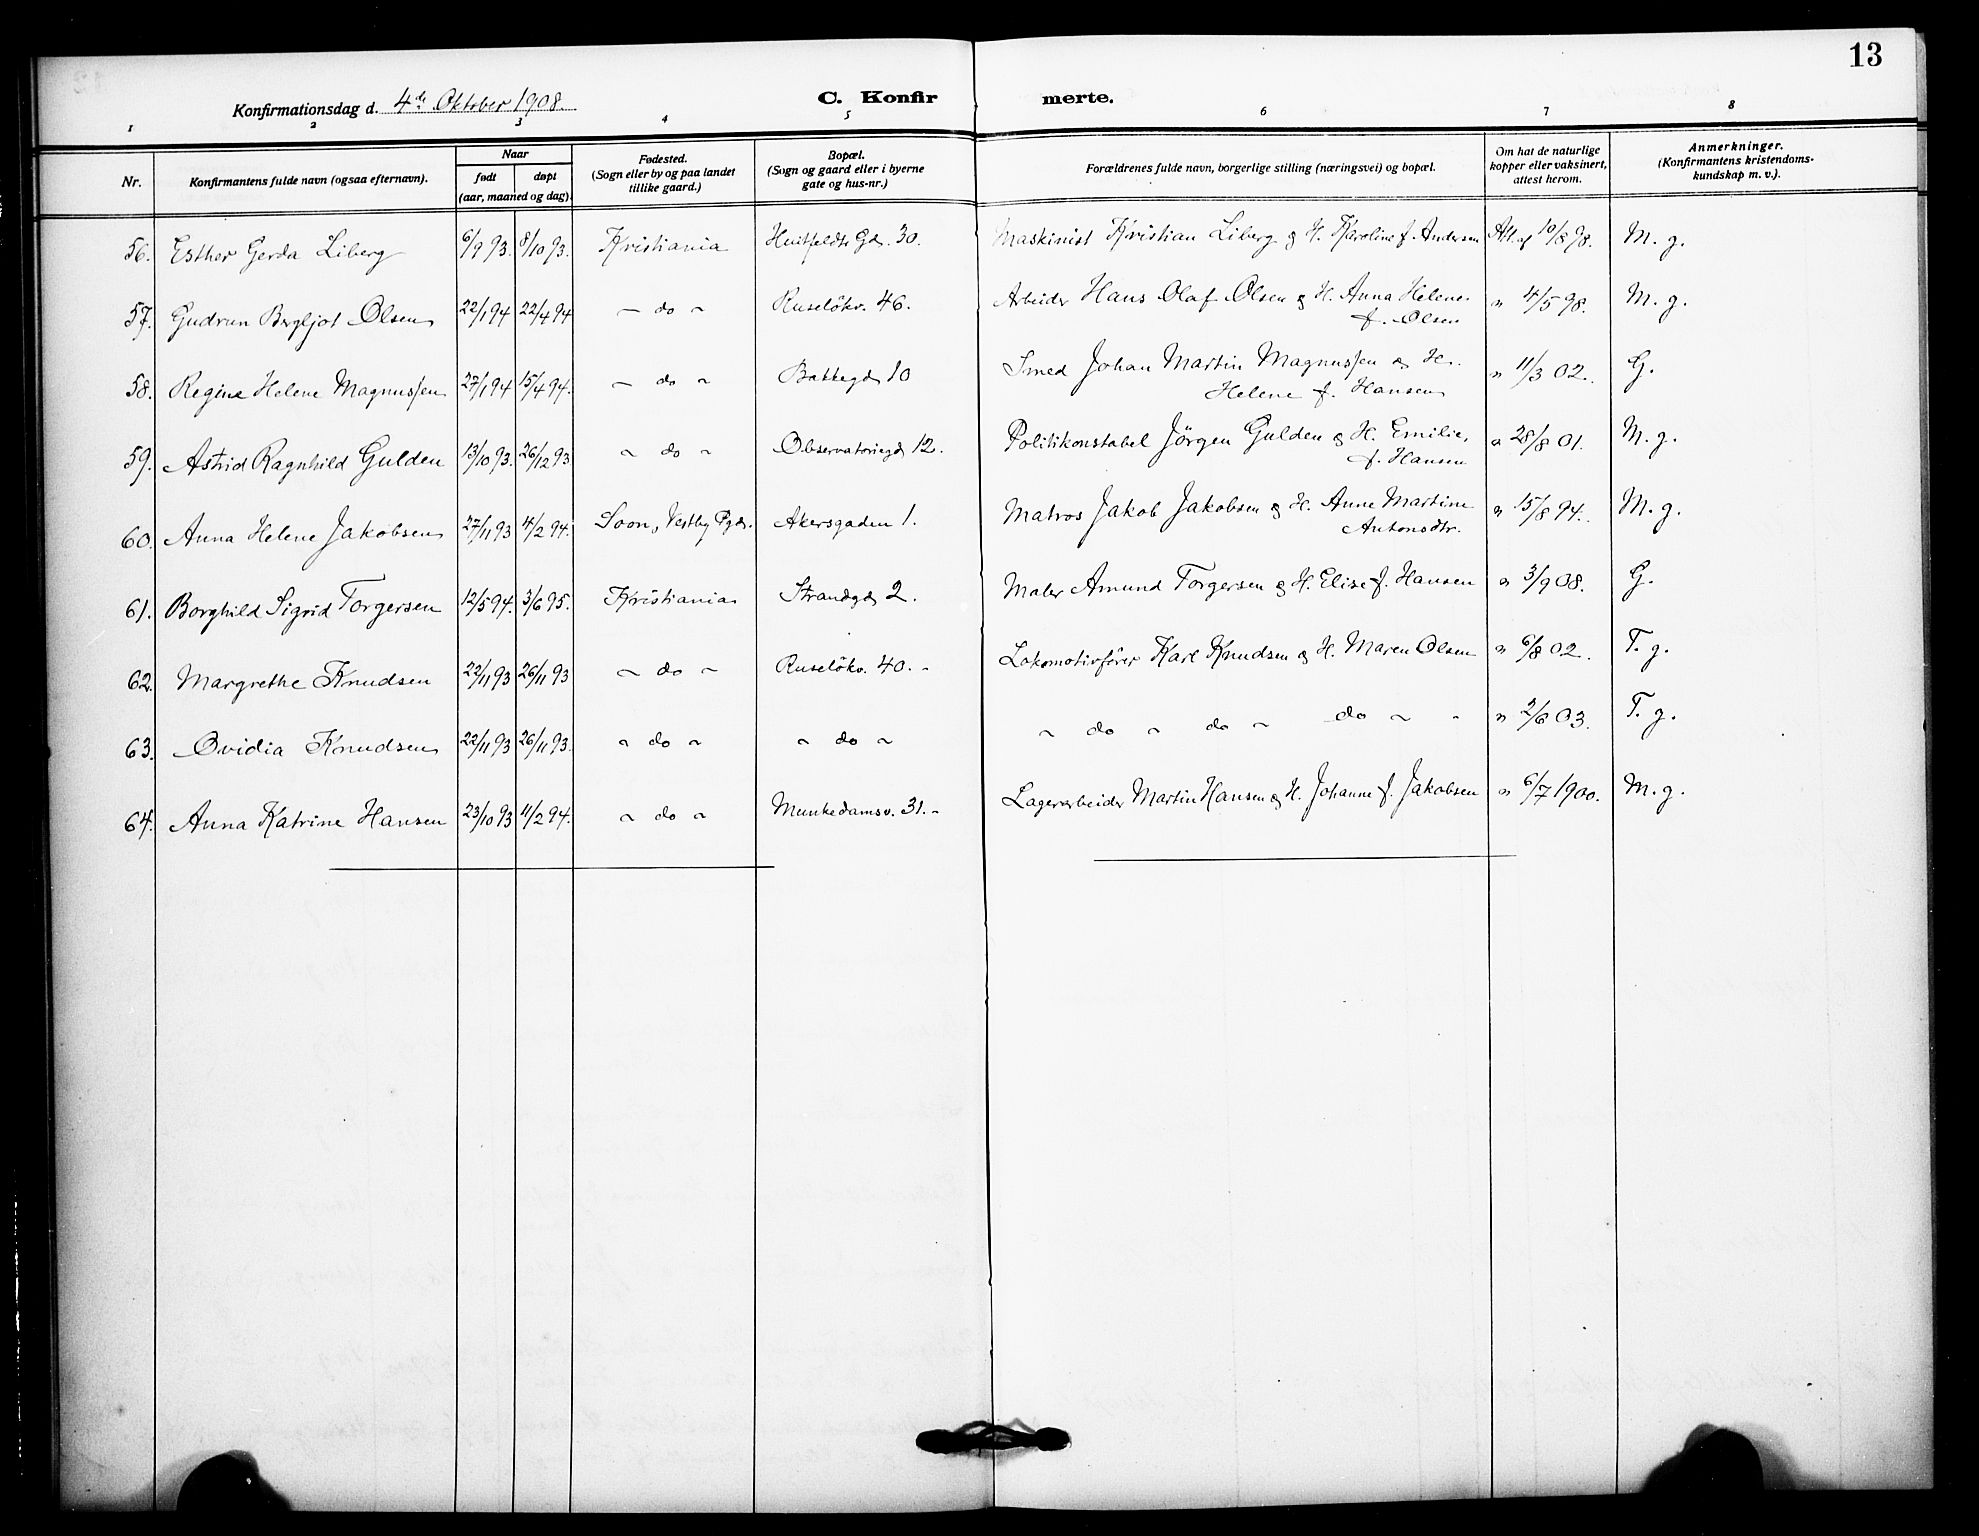 13
Konfirmationsdag d. 4de Oktober 1908.
C. Konfir merte.
1 2 3 4 5 6 7 8
Nr.
Konfirmantens fulde navn (ogsaa efternavn).
Naar
født døpt
(aar, maaned og dag).
Fødested.
(Sogn eller by og paa landet
tillike gaard.)
Bopæl.
(Sogn og gaard eller i byerne
gate og hus-nr.)
Forældrenes fulde navn, borgerlige stilling (næringsvei) og bopæl.
Om hat de naturlige
kopper eller vaksinert,
attest herom.
Anmerkninger.
(Konfirmantens kristendoms-
kundskap m. v.).
56. Esther Gerda Liberg 6/9 93. 8/10 93. Kristiania Huitfeldts Gd. 30. Maskinist Kristian Liberg og H. Karoline f. Andersen Att. af 10/8 98. M. g.
57. Gudrun Bergljot Olsen 22/1 94 22/4 94 — do " Ruseløkv. 46. Arbeider Hans Olaf Olsen og H. Anna Helene
f. Olsen " 4/5 98. M. g.
58. Regine Helene Magnussen 27/1 94 15/4 94. — do " Bakkegd. 10 Smed Johan Martin Magnussen og H.
Helene f. Hansen " 11/3 02. G.
59. Astrid Ragnhild Gulden 13/10 93. 26/12 93 " do " Observatoriegd. 12. Politikonstabel Jörgen Gulden og H. Emilie,
f. Hansen " 28/8 01. M. g.
60. Anna Helene Jakobsen 27/11 93 4/2 94. Soon, Vestby Pgd. Akersgaden 1. Matros Jakob Jakobsen og H. Anne Martine
Antonsdtr. " 15/8 94. M. g.
61. Borghild Sigrid Torgersen 12/5 94. 3/6 95. Kristiania Strandgd. 2. Maler Amund Torgersen og H. Elise f. Hansen " 3/9 08. G.
62. Margrethe Knudsen 22/11 93 26/11 93 " do " Ruseløkv. 40. - Lokomotivfører Karl Knudsen og H. Maren Olsen " 6/8 02. T. g.
63. Ovidia Knudsen 22/11 93 26/11 93. " do " " do " " do " do " do " " " 2/6 03. T. g.
64. Anna Katrine Hansen 23/10 93 11/2 94. " do " Munkedamsv. 31. - Lagerarbeider Martin Hansen og H. Johanne f. Jakobsen " 6/7 1900. M. g.